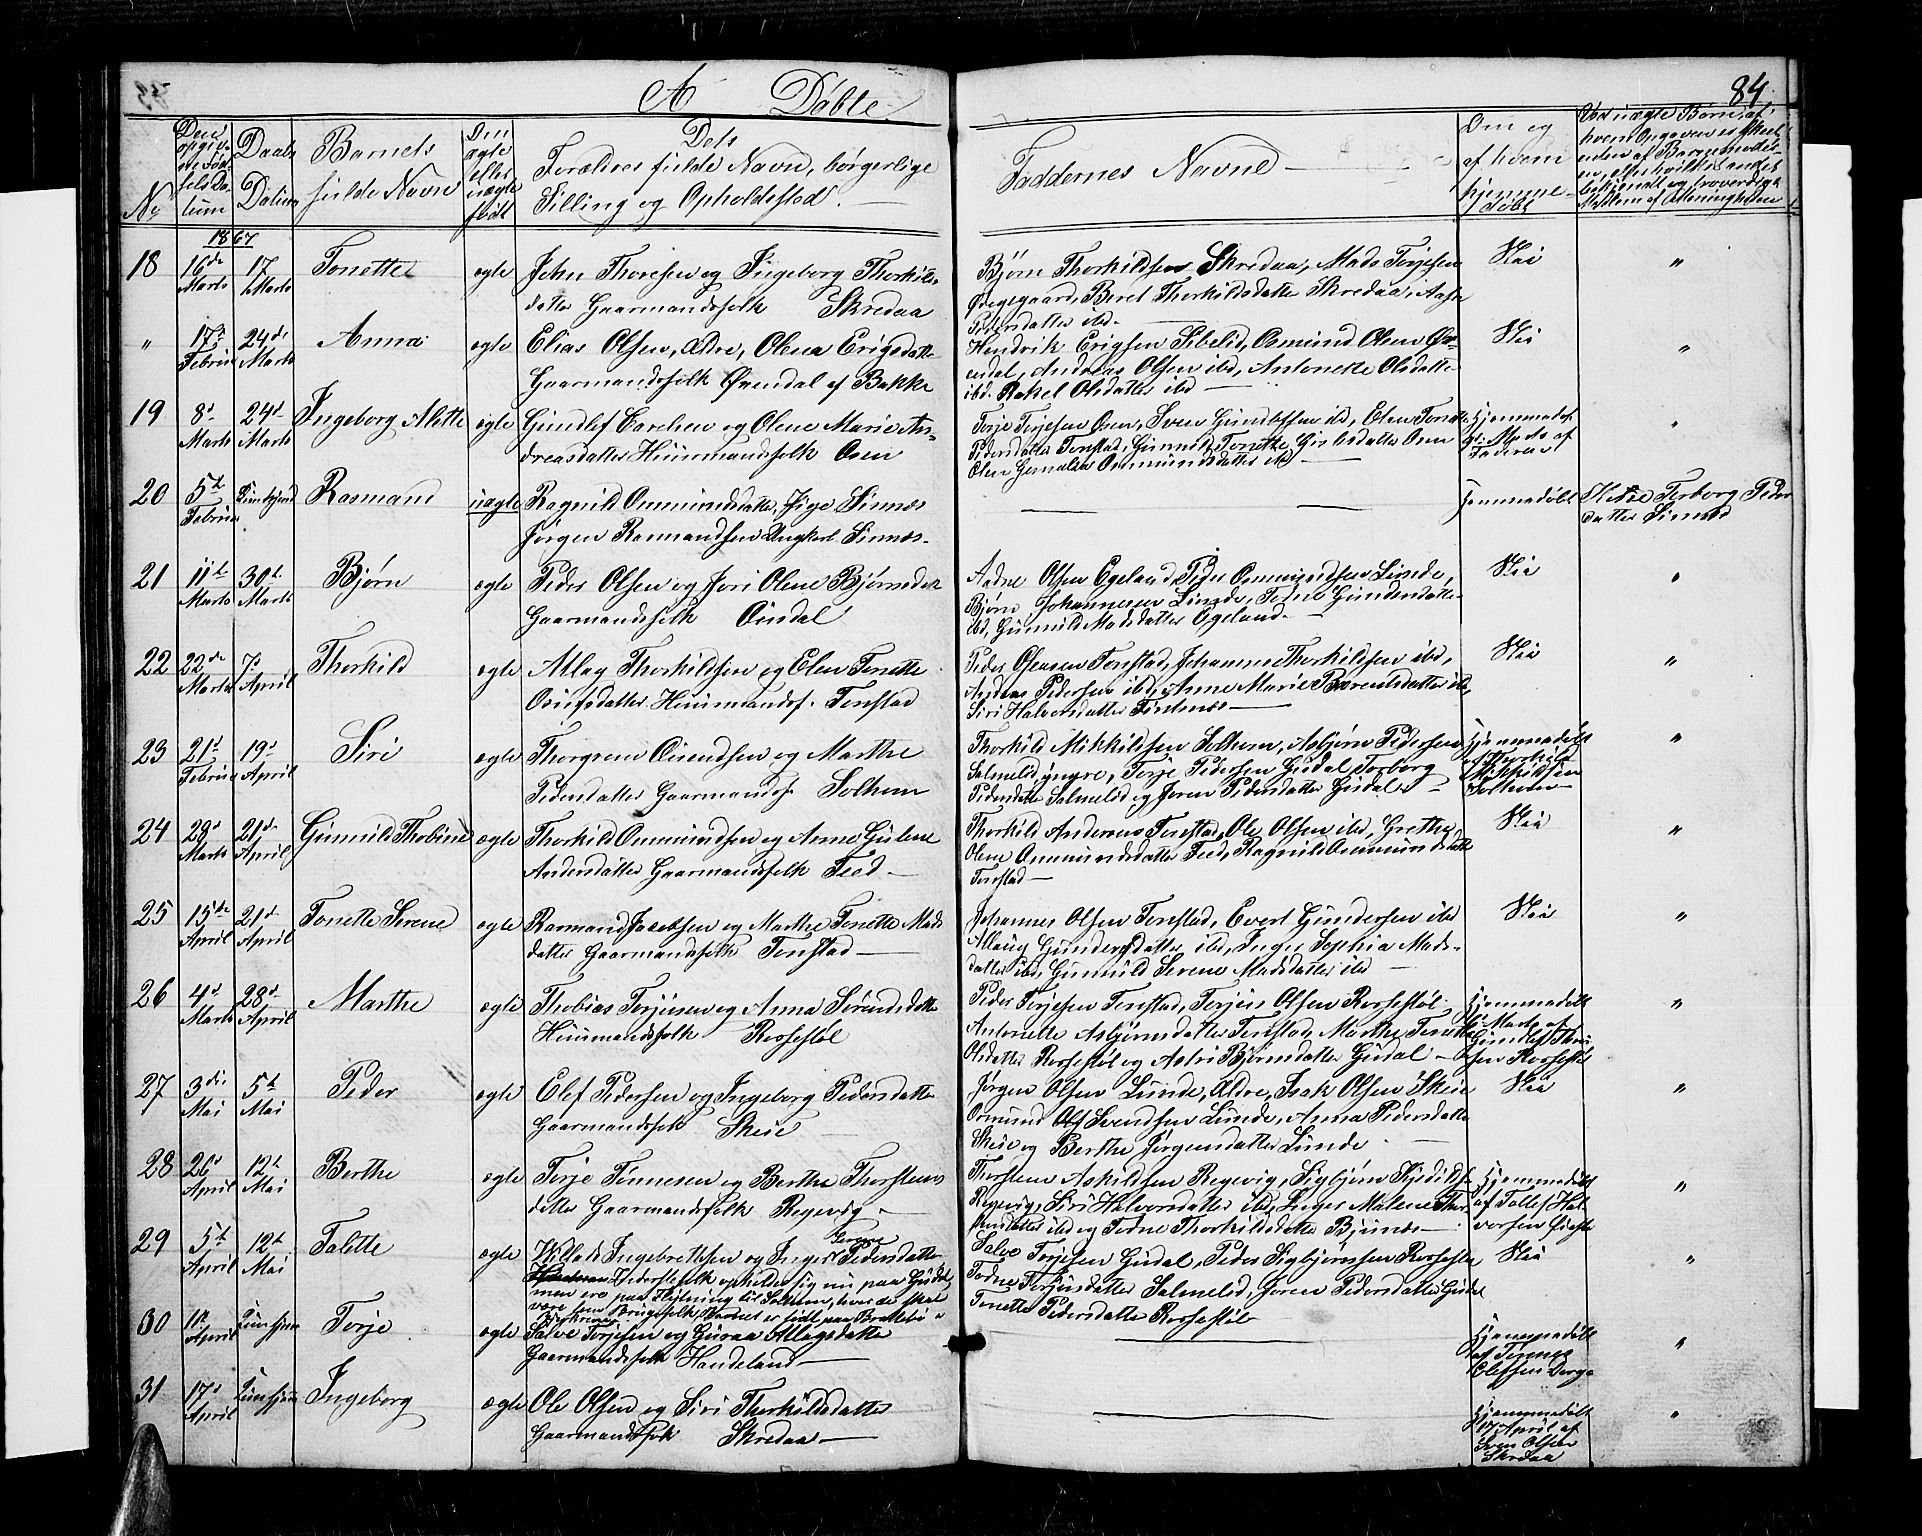 A Døbte
84
No
Den opgivne Fødselsdatum
Daabs Datum
Barnets fulde Navn
Om ægte eller uægte født
Dets Forældres fulde Navne, borgerlige Stilling og Opholdssted.
Faddernes Navne
Om og af hvem hjemmedøbt
1867
18 16de Marts 17 Marts Tonette ægte John Thoresen og Ingeborg Thorkils-
datter Gaardmandsfolk Skredaa
Bjørn Thorkildsen Skredaa, Mads Torjesen
Øvregaard, Beret Thorkildsdatter Skredaa, Aase
Pedersdatter ibd.
Nei "
" 17 Februar 24d Marts Anna ægte Elias Olsen, ældre, Olena Erigsdatter
Gaarmandsfolk Øvendal af Bakke
Hendrik Erigsen Sibelid, Osmund Olsen Øv-
endal, Andreas Olsen ibd, Antonette Olsdatter
ibd. Rakel Olsdatter ibd
Nei "
19 8d Marts 24d Marts Ingeborg Alitte ægte Gundlef Carelsen og Olene Marie An-
dreasdatter Huusmandsfolk Osen
Torje Torjesen Osen, Sven Gundlefsen ibd, Elen Tonette
Pedersdatter Tonstad, Gunnild Tonette Gislesdatter Osen
Elen Gemalia Ommundsdatter ibd
Hjemmedøbt
Marts af
Faderen
"
20 5te Februar Rasmand uægte Ragnild Ommundsdatter, Pige Sinnes
Jørgen Rasmandsen Ungkarl Sinnes
Hjemmedøbt
Torborg Peder
datter Sinnes
21 11te Marts 30te Marts Bjørn ægte Peder Olsen og Jori Olene Bjørnsdatter
Gaarmandsfolk Ousdal
Aadne Olsen Egeland, Peder Ommundsen Lunde,
Bjørn Johannesen Lunde, Todne Gundersdatter
ibd, Gunnild Madsdatter Egeland
Nei "
22 22de Marts 7d April Thorkild ægte Atlag Thorkildsen og Elen Tonette
Osufsdatter Huusmandsf. Tonstad
Peder Osensen Tonstad, Johannes Thorkildsen ibd,
Andreas Pedersen ibd, Anne Marie Berentsdatter ibd,
Siri Halvorsdatter
Nei "
23 21d Februar 19d April Siri ægte Thorgrim Eivendsen og Marthe
Pedersdatter Gaarmandsf. Solhom
Thorkild Mikkildsen Solhom, Asbjørn Pedersen
Salmelid, yngre, Torje Pedersen Gusdal, Torborg
Pedersdatter Salmelid og Joren Pedersdatter Gusdal
Hjemmedøbt
af Thorkild
Mikkildsen
Solhom
"
24 29d Marts 21d April Gunnild Thobine ægte Thorkild Ommundsen og Anne Gulene
Andersdatter Gaarmandsfolk Feed
Thorkild Andersens Tonstad, Ole Olsen ibd, Grethe
Olene Ommundsdatter Feed, Ragnild Ommundsdatter
Tonstad
Nei "
25 15de April 21d April Tonette Serene ægte Rasmand Jacobsen og Marthe Tonette Mads
datter Gaarmandsfolk Tonstad
Johannes Olsen Tonstad, Evert Gundersen ibd
Allaug Gundersdatter ibd, Inger Sophia Mads-
datter ibd, Gunnild Serene Madsdatter ibd
Nei "
26 4d Marts 28d April Marthe ægte Thobias Torjusen og Anna
Huusmandsfolk Rossestøl
Peder Torjesen Tonstad, Torjus Olsen Rossestøl
Antonette Asbjørnsdatter Tonstad, Marthe Tonette
Olsdatter Rossestøl og Astri Bjørnsdatter Gusdal
Hjemmedøbt
Marts af
Gundlef
sen Rossestøl
"
27 3die Mai 5te Mai Peder ægte Elef Pedersen og Ingeborg Pedersdatter
Gaarmandsfolk Skeie
Jørgen Olsen Lunde, ældre, Isak Olsen Skeie
Osmund Svendsen Lunde, Anna Pedersdatter
Skeie og Berthe Jørgensdatter Lunde
Nei "
28 26d April 12te Mai Berthe ægte Torje Tønnesen og Berthe Thorstens
datter Gaarmandsfolk Regevig
Thorsten Askildsen Regevig, Sigbjørn
Regevig, Siri Halvorsdatter ibd, Inger Malene Thor-
stensdatter ibd og Todne Thorkildsdatter Bjunes
Hjemmedøbt
af Tollef Hal
vorsen
"
29 5te April 12te Mai Talette ægte Ingebretsen og Inger Serene Pedersdatter
opholder sig nu paa Gusdal
men ere paa Flytning til Solhom, hvor de skal
være som Brugsfolk, Barnet er født paa
Salve Torjesen Gusdal, Peder Sigbjørnsen Rossestøl
Todne Torjusdatter Salmelid, Joren Pedersdatter Gusdal
Tonette Pedersdatter Rossestøl
Nei "
30 10 April Torje ægte Salve Torjesen og Guroa Atlagsdatter
Gaarmandsfolk Haudeland
Hjemmedøbt
af Tønnes
Elefsen Dorge
"
31 17d April Ingeborg ægte Ole Olsen og Siri Thorkildsdatter
Gaarmandsfolk Skredaa
Hjemmedøbt
17 April af
Sven Olsen
Skredaa
"